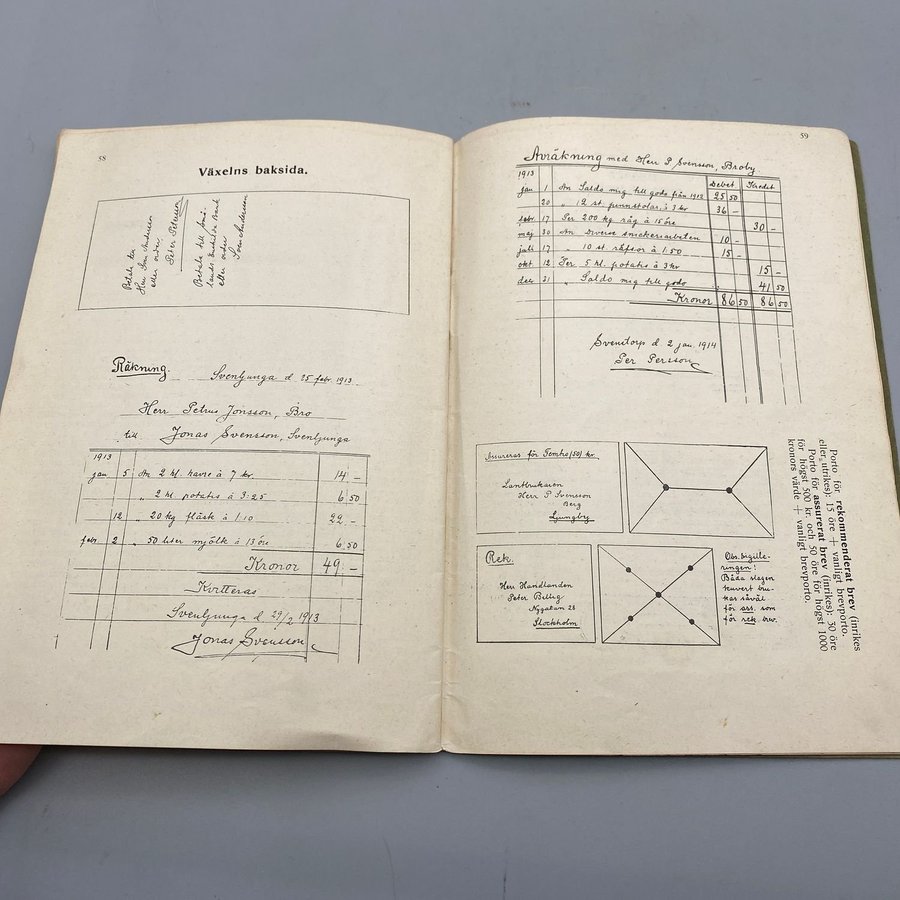 58
Växelns baksida.
Betala till
Herr Sven Andersson
eller order
Peter Peterson
Betala till Små-
lands Enskilda Bank
eller order
Sven Andersson
Räkning.
Svenljunga d. 25 febr. 1913
Herr Petrus Jonsson, Bro
till Jonas Svensson, Svenljunga
1913
jan 5 An 2 hl. havre à 7 kr. 14 –
„ 2 hl. potatis à 3:25 6 50
12 „ 20 kg fläsk à 1:10 22 –
febr. 2 „ 50 liter mjölk à 13 öre 6 50
Kronor 49 –
Kvitteras
Svenljunga d 29/2 1913
Jonas Svensson
59
Avräkning med Herr P Svensson, Broby
1913 Debet Kredit
jan 1 An Saldo mig till godo från 1912 25 50
20 „ 12 st. pinnstolar à 3 kr 36 –
febr. 17 Per 200 kg råg à 15 öre 30 –
maj 30 An Diverse snickeriarbeten 10 –
juli 17 „ 10 st. räfsor à 1:50 15 –
okt 12 Per 5 hl. potatis à 3 kr 15 –
dec 31 „ Saldo mig till godo 41 50
Kronor 86 50 86 50
Svenstorp d 2 jan. 1914
Per Persson
Assureras för Femtio (50) kr.
Lantbrukaren
Herr P Svensson
Berg
Ljungby
Rek.
Herr Handlanden
Peter Billig
Nygatan 28
Stockholm
Obs. sigille-
ringen!
Båda slagen
kuvert bru-
kas såväl
för ass. som
för rek. brev.
Porto för rekommenderat brev (inrikes
eller utrikes): 15 öre + vanligt brevporto.
Porto för assurerat brev (inrikes): 30 öre
för högst 500 kr. och 50 öre för högst 1000
kronors värde + vanligt brevporto.